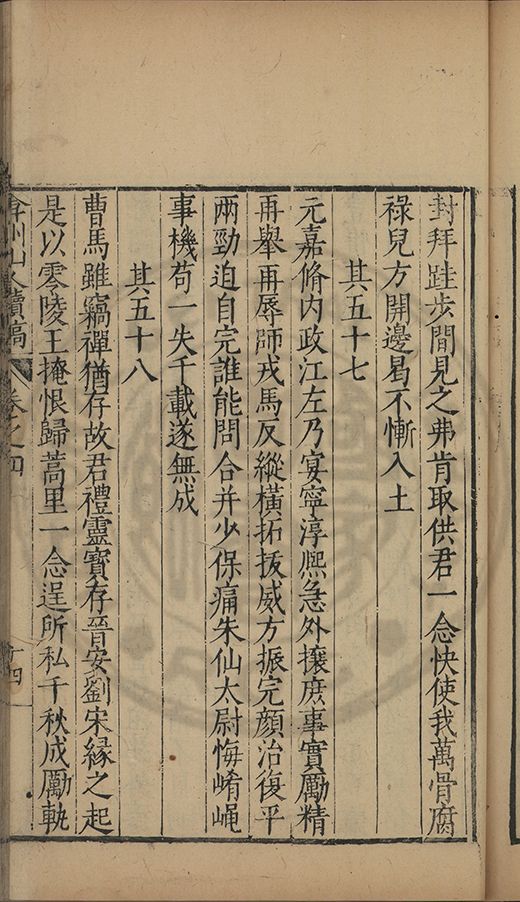 封拜跬步間見之弗肯取供君一念快使我萬骨腐
祿兒方開邊曷不慚入土
其五十七
元嘉脩内政江左乃宴寧淳熈急外攘庶事實勵精
再舉再辱師戎馬反縱橫拓拔威方振完顔治復平
兩勁迫自完誰能問合并少保痛朱仙太尉悔崤黽
事機苟一失千載遂無成
其五十八
曹馬雖竊禪猶存故君禮靈寶存晉安劉宋緣之起
是以零陵王掩恨歸蒿里一念逞所私千秋成厲軌
弇州山人續稿
卷之四
十四